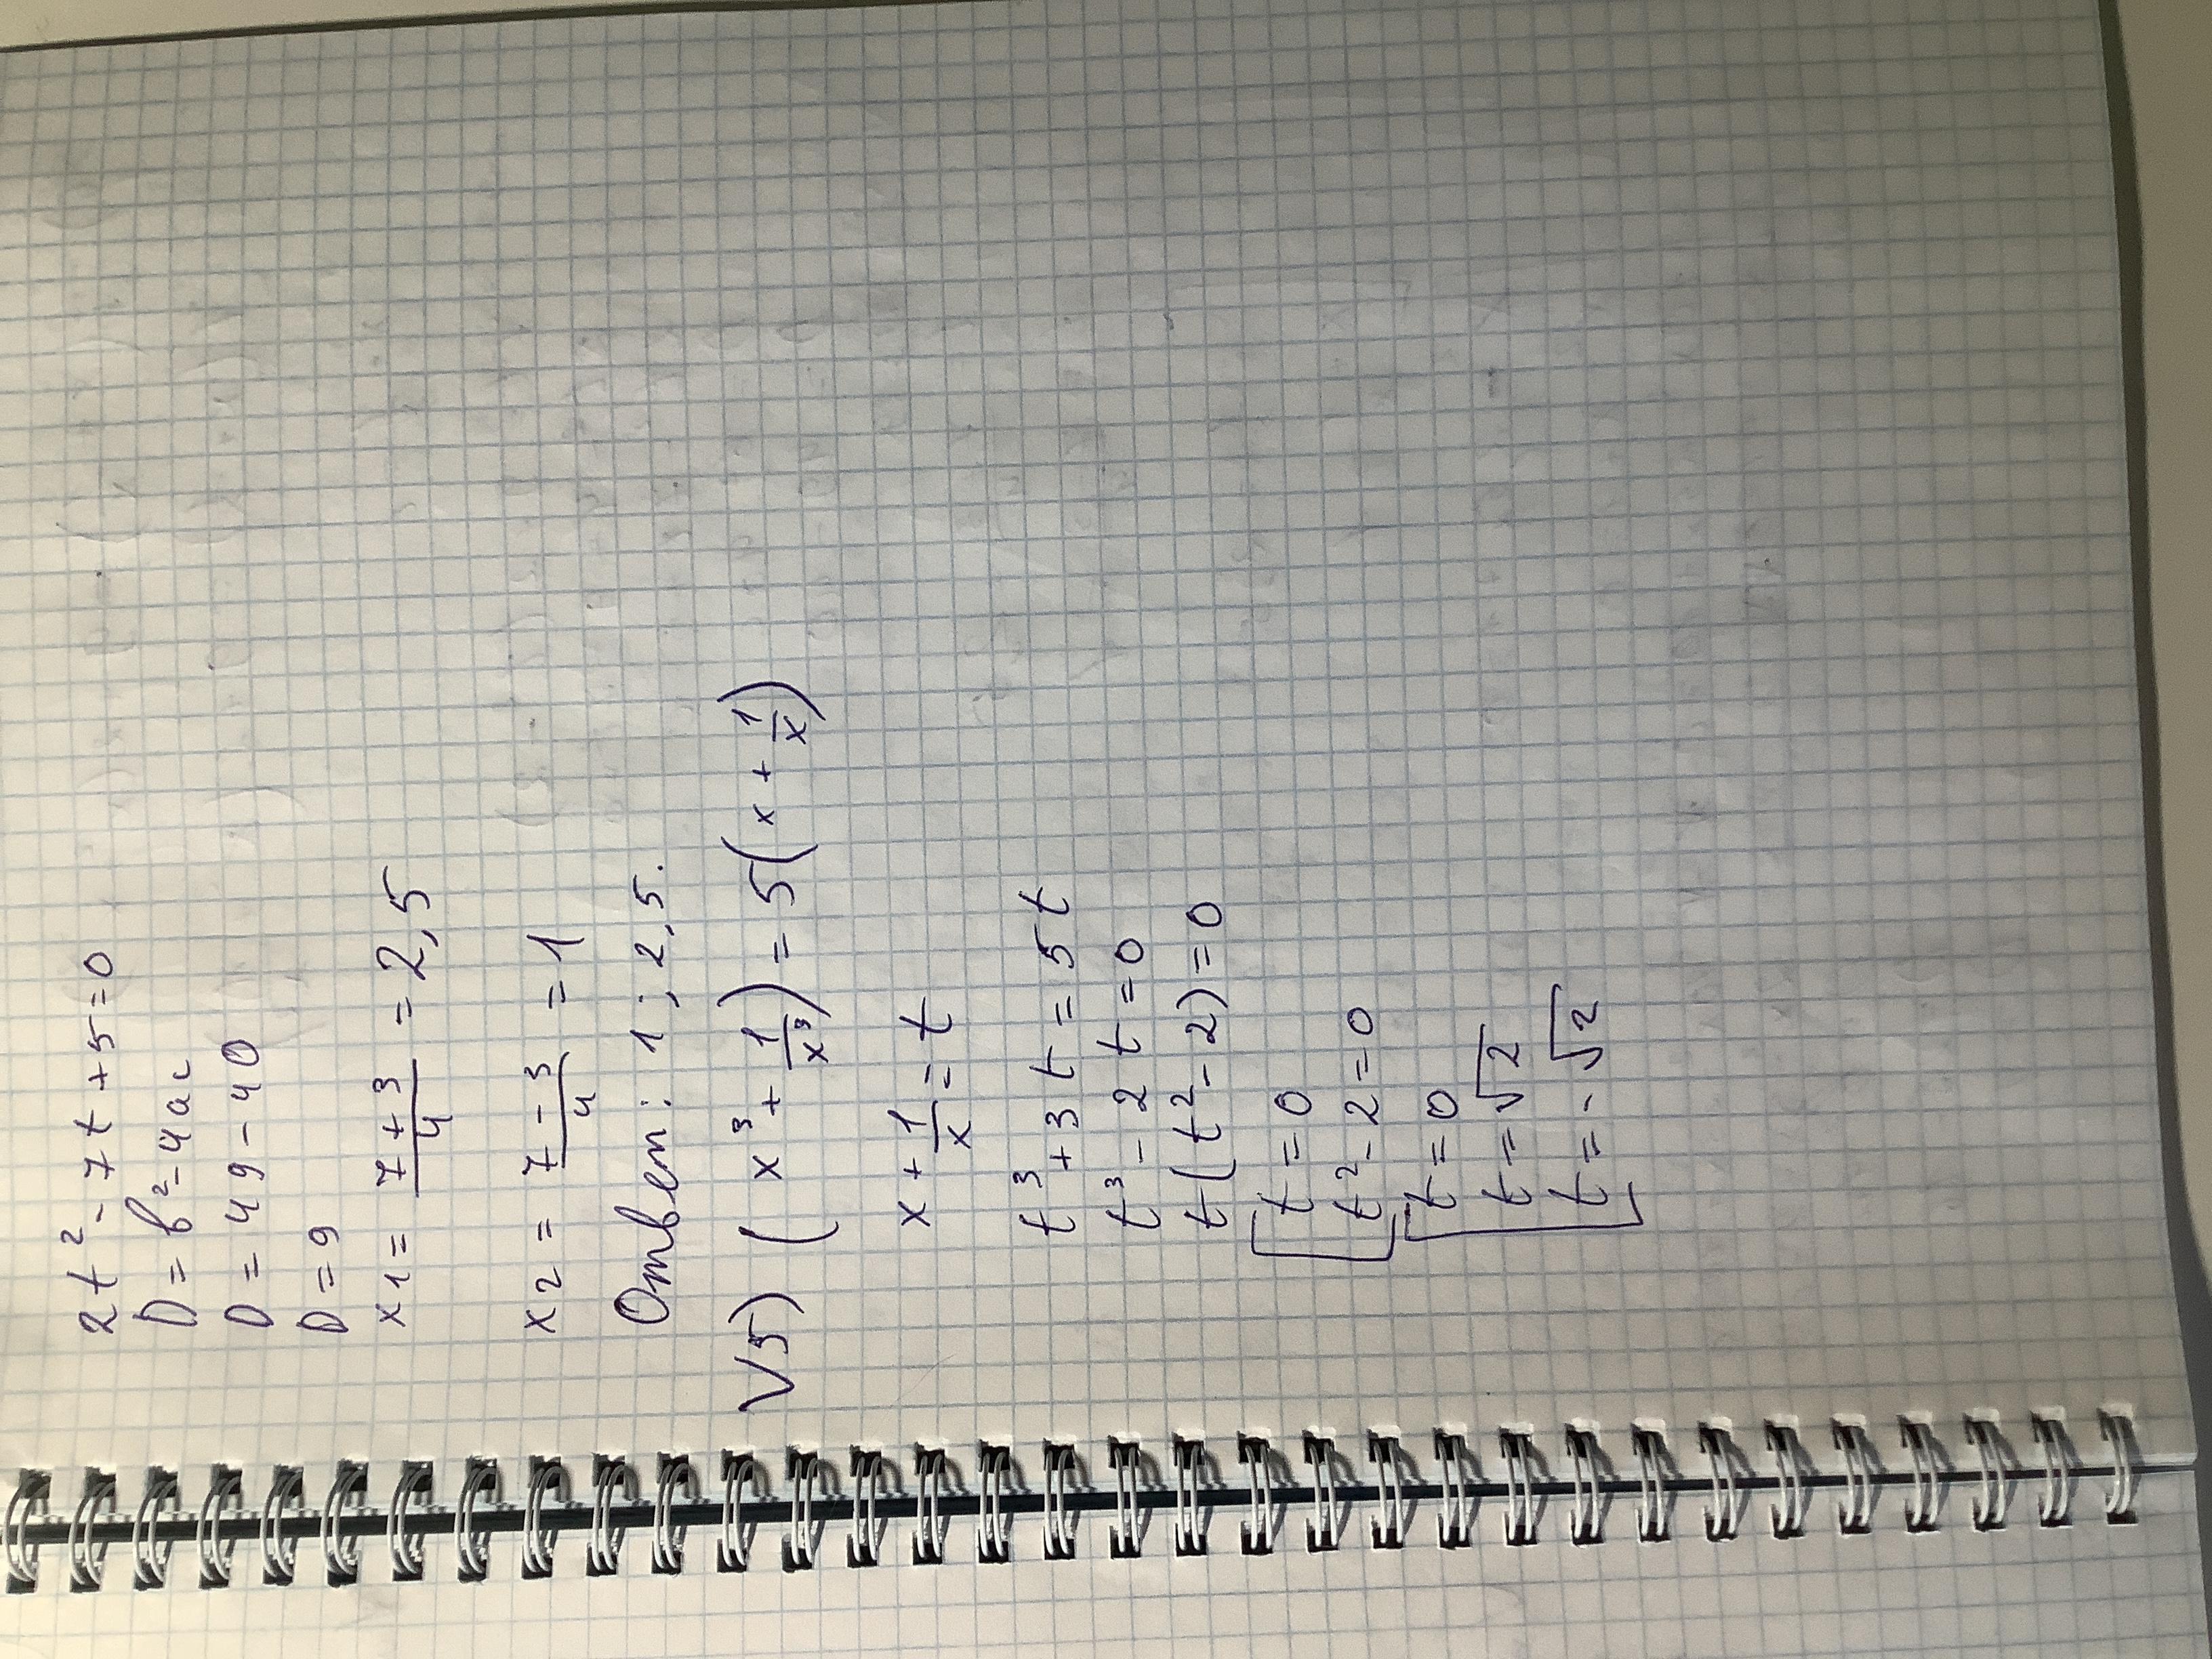 2t² - 7t + 5 = 0
D = b² - 4ac
D = 49 - 40
D = 9
x₁ = (7 + 3)/4 = 2,5
x₂ = (7 - 3)/4 = 1
Ответ: 1; 2,5.
√5) (x³ + 1/x³) = 5(x + 1/x)
x + 1/x = t
t³ + 3t = 5t
t³ - 2t = 0
t(t² - 2) = 0
[t = 0
t² - 2 = 0
[t = 0
t = √2
t = -√2